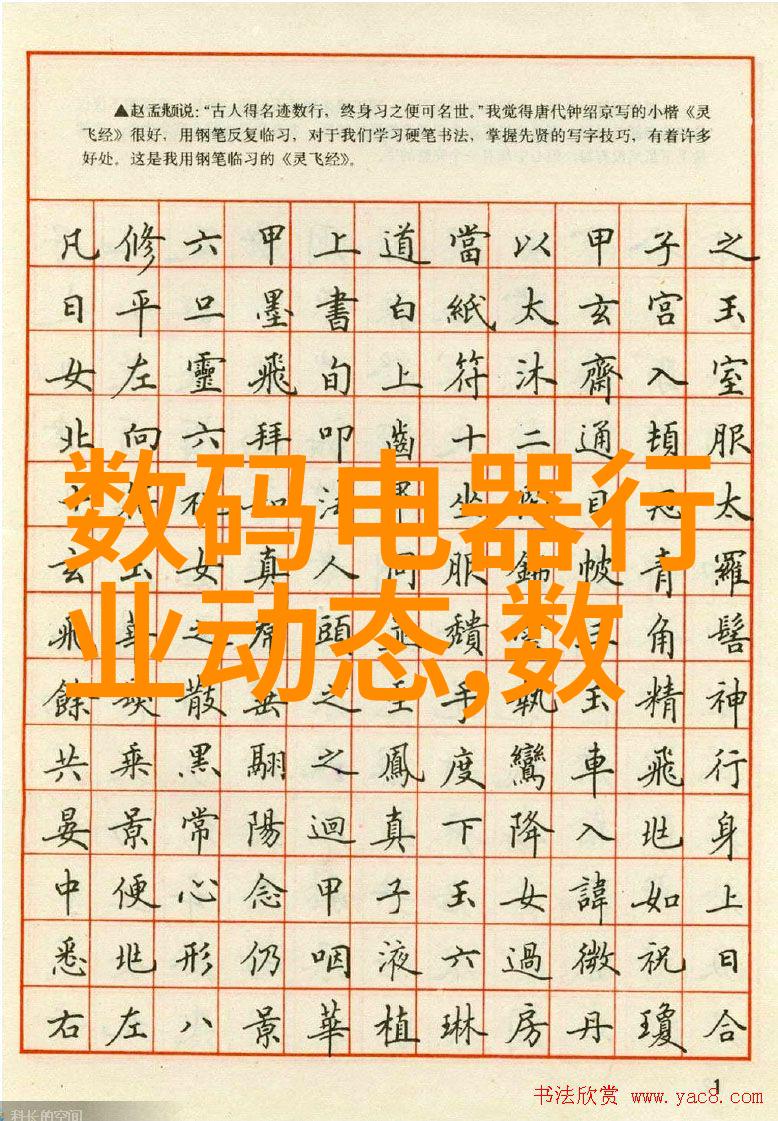 ▲赵孟頫说：“古人得名迹数行，终身习之便可名世。”我觉得唐代钟绍京写的小楷《灵
飞经》很好，用钢笔反复临习，对于我们学习硬笔书法，掌握先贤的写字技巧，有着许多
好处。这是我用钢笔临习的《灵飞经》。
凡修六甲上道當以甲子之
日平旦墨書白紙太玄宮玉
女左靈飛旬上符沐齋入室
北向六拜叩齒十二通頓服
坐目太
玄玉女真人服帔青羅
飛華之頭角髻
餘散之玉手執玉精神
共乘黑翮之鳳度鸞車飛行
晏景常陽迴真下降入兆身
中便心念甲子玉女諱如上
悉兆形仍咽液六過微祝日
右左八景華植琳房丹瓊合
数码电器行
业动态,数
1
书法欣赏 www.yac8.com
科长的空间